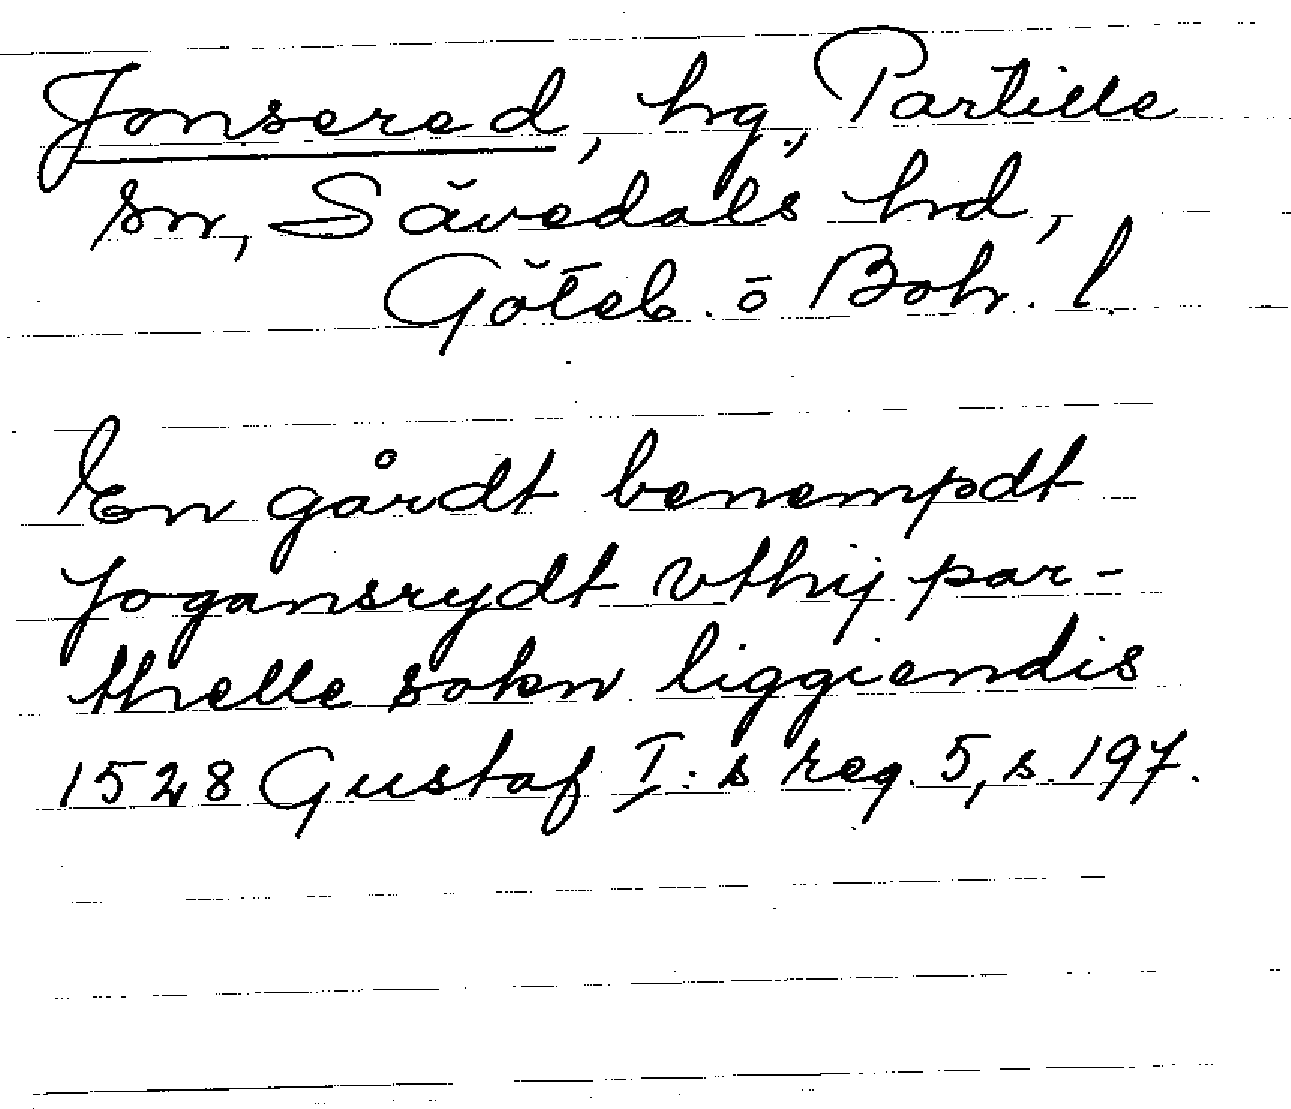 Jonsered, hg, Partille
sn, Sävedals hrd,
Göteb. o Boh. l
En gårdt benempdt
Jogansrydt vthij par-
thelle sokn liggiendis
1528 Gustaf I:s reg. 5, s. 197.